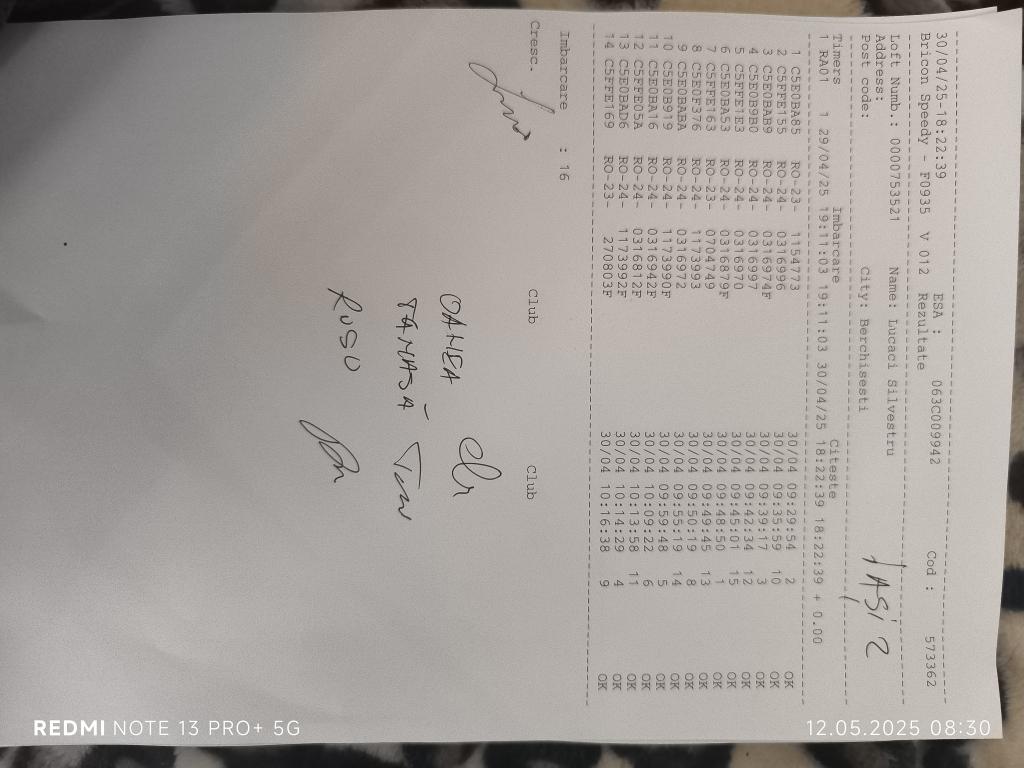 30/04/25-18:22:39 ESA : 063C009942 Cod : 573362
Bricon Speedy - F0935 V 012 Rezultate
Loft Numb.: 0000753521 Name: Lucaci Silvestru
Address: IASI 2
Post code: City: Berchisesti
Timers Imbarcare Citeste
1 RA01 1 29/04/25 19:11:03 19:11:03 30/04/25 18:22:39 18:22:39 + 0.00
1 C5E0BA85 RO-23- 1154773 30/04 09:29:54 2 OK
2 C5FFE155 RO-24- 0316996 30/04 09:35:59 10 OK
3 C5E0BAB9 RO-24- 0316974F 30/04 09:39:17 3 OK
4 C5E0B9B0 RO-24- 0316997 30/04 09:42:34 12 OK
5 C5FFE1E3 RO-24- 0316970 30/04 09:45:01 15 OK
6 C5E0BA53 RO-24- 0316879F 30/04 09:48:50 1 OK
7 C5FFE163 RO-23- 0704749 30/04 09:49:45 13 OK
8 C5E0F376 RO-24- 1173993 30/04 09:50:19 8 OK
9 C5E0BABA RO-24- 0316972 30/04 09:55:19 14 OK
10 C5E0B919 RO-24- 1173990F 30/04 09:59:48 5 OK
11 C5E0BA16 RO-24- 0316942F 30/04 10:09:22 6 OK
12 C5FFE05A RO-24- 0316812F 30/04 10:13:58 11 OK
13 C5E0BAD6 RO-24- 1173992F 30/04 10:14:29 4 OK
14 C5FFE169 RO-23- 270803F 30/04 10:16:38 9 OK
Imbarcare : 16
Cresc. Club Club
OANEA
TANASĂ
RUSU
REDMI NOTE 13 PRO+ 5G
12.05.2025 08:30